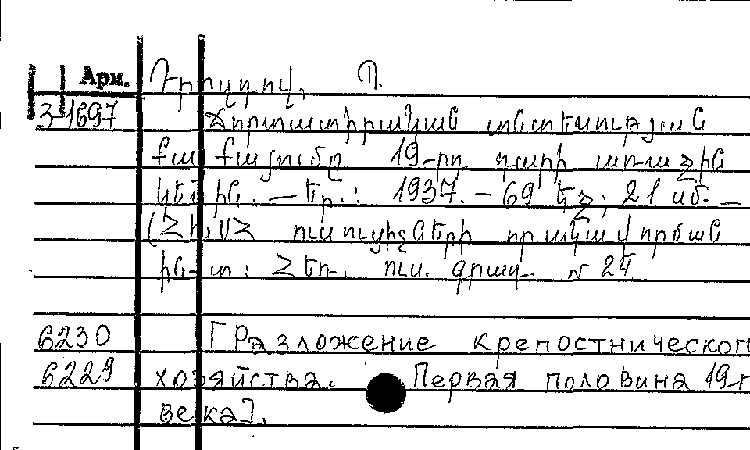 Арм.
3-1697
Դրոզդով, Պ.
Ճորտատիրական տնտեսության
քայքայումը 19-րդ դարի առաջին
կեսին. — Եր.: 1937. - 69 էջ; 21 սմ. —
(ՀԽՍՀ ուսուցիչների որակավորման
ին-տ: Հեռ. ուս. գրադ. № 24
6230 [Разложение крепостнического
6229 хозяйства. Первая половина 19-г
века].